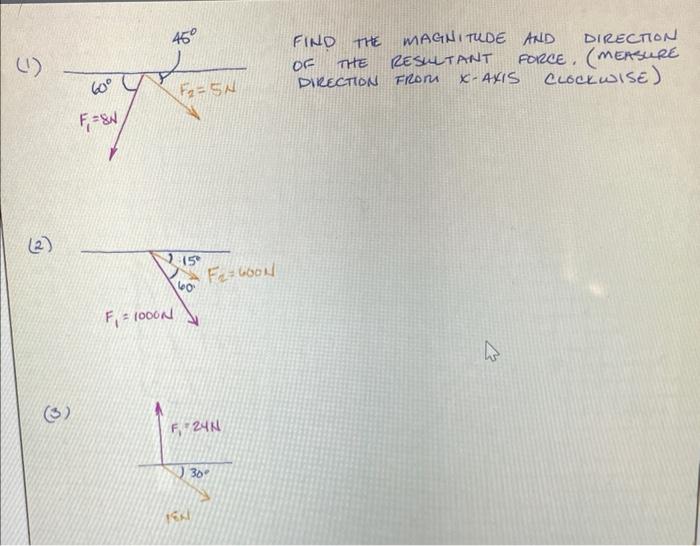 FIND THE MAGNITUDE AND DIRECTION
OF THE RESULTANT FORCE. (MEASURE
DIRECTION FROM X-AXIS CLOCKWISE)
(1)
45°
60°
F₂=5N
F₁=8N
(2)
15°
F₂=600N
60°
F₁=1000N
(3)
F₁=24N
30°
18N